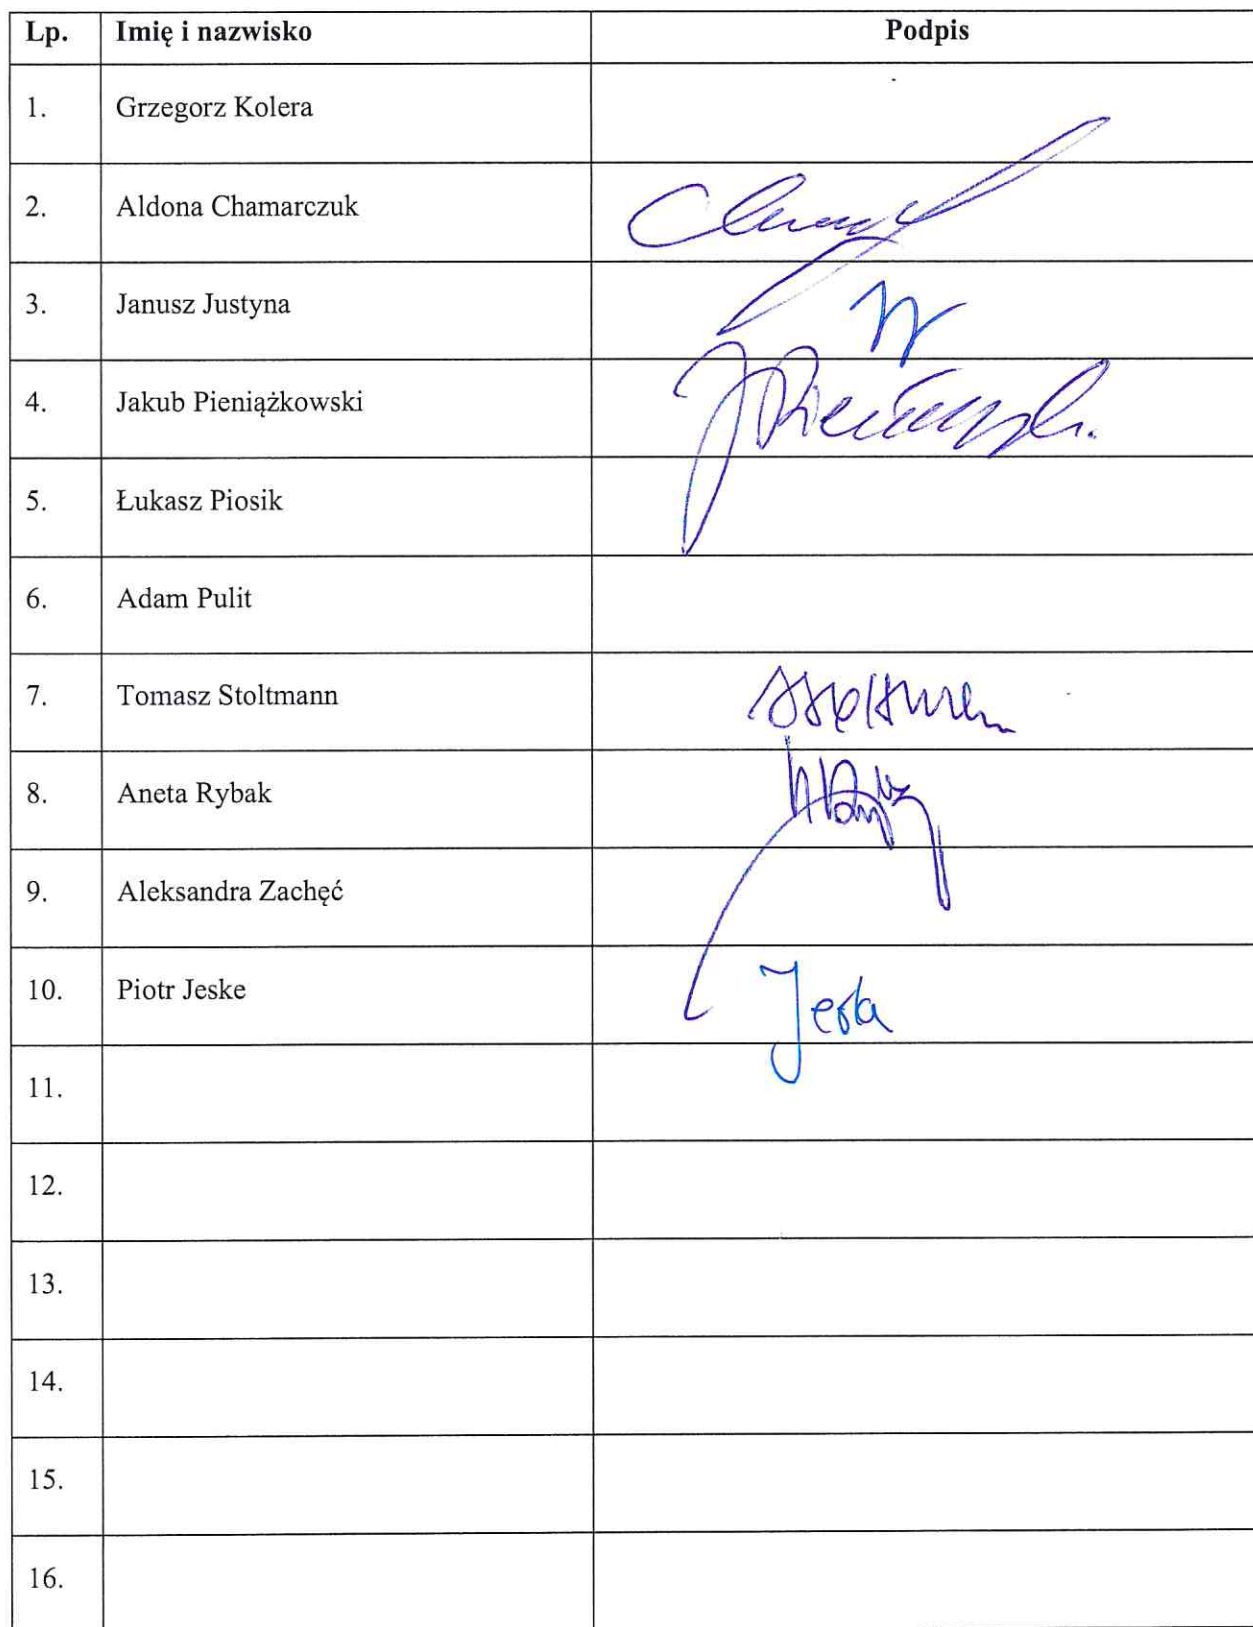 Lp. Imię i nazwisko Podpis
1. Grzegorz Kolera
2. Aldona Chamarczuk
3. Janusz Justyna
4. Jakub Pieniążkowski
5. Łukasz Piosik
6. Adam Pulit
7. Tomasz Stoltmann
8. Aneta Rybak
9. Aleksandra Zachęć
10. Piotr Jeske
11.
12.
13.
14.
15.
16.